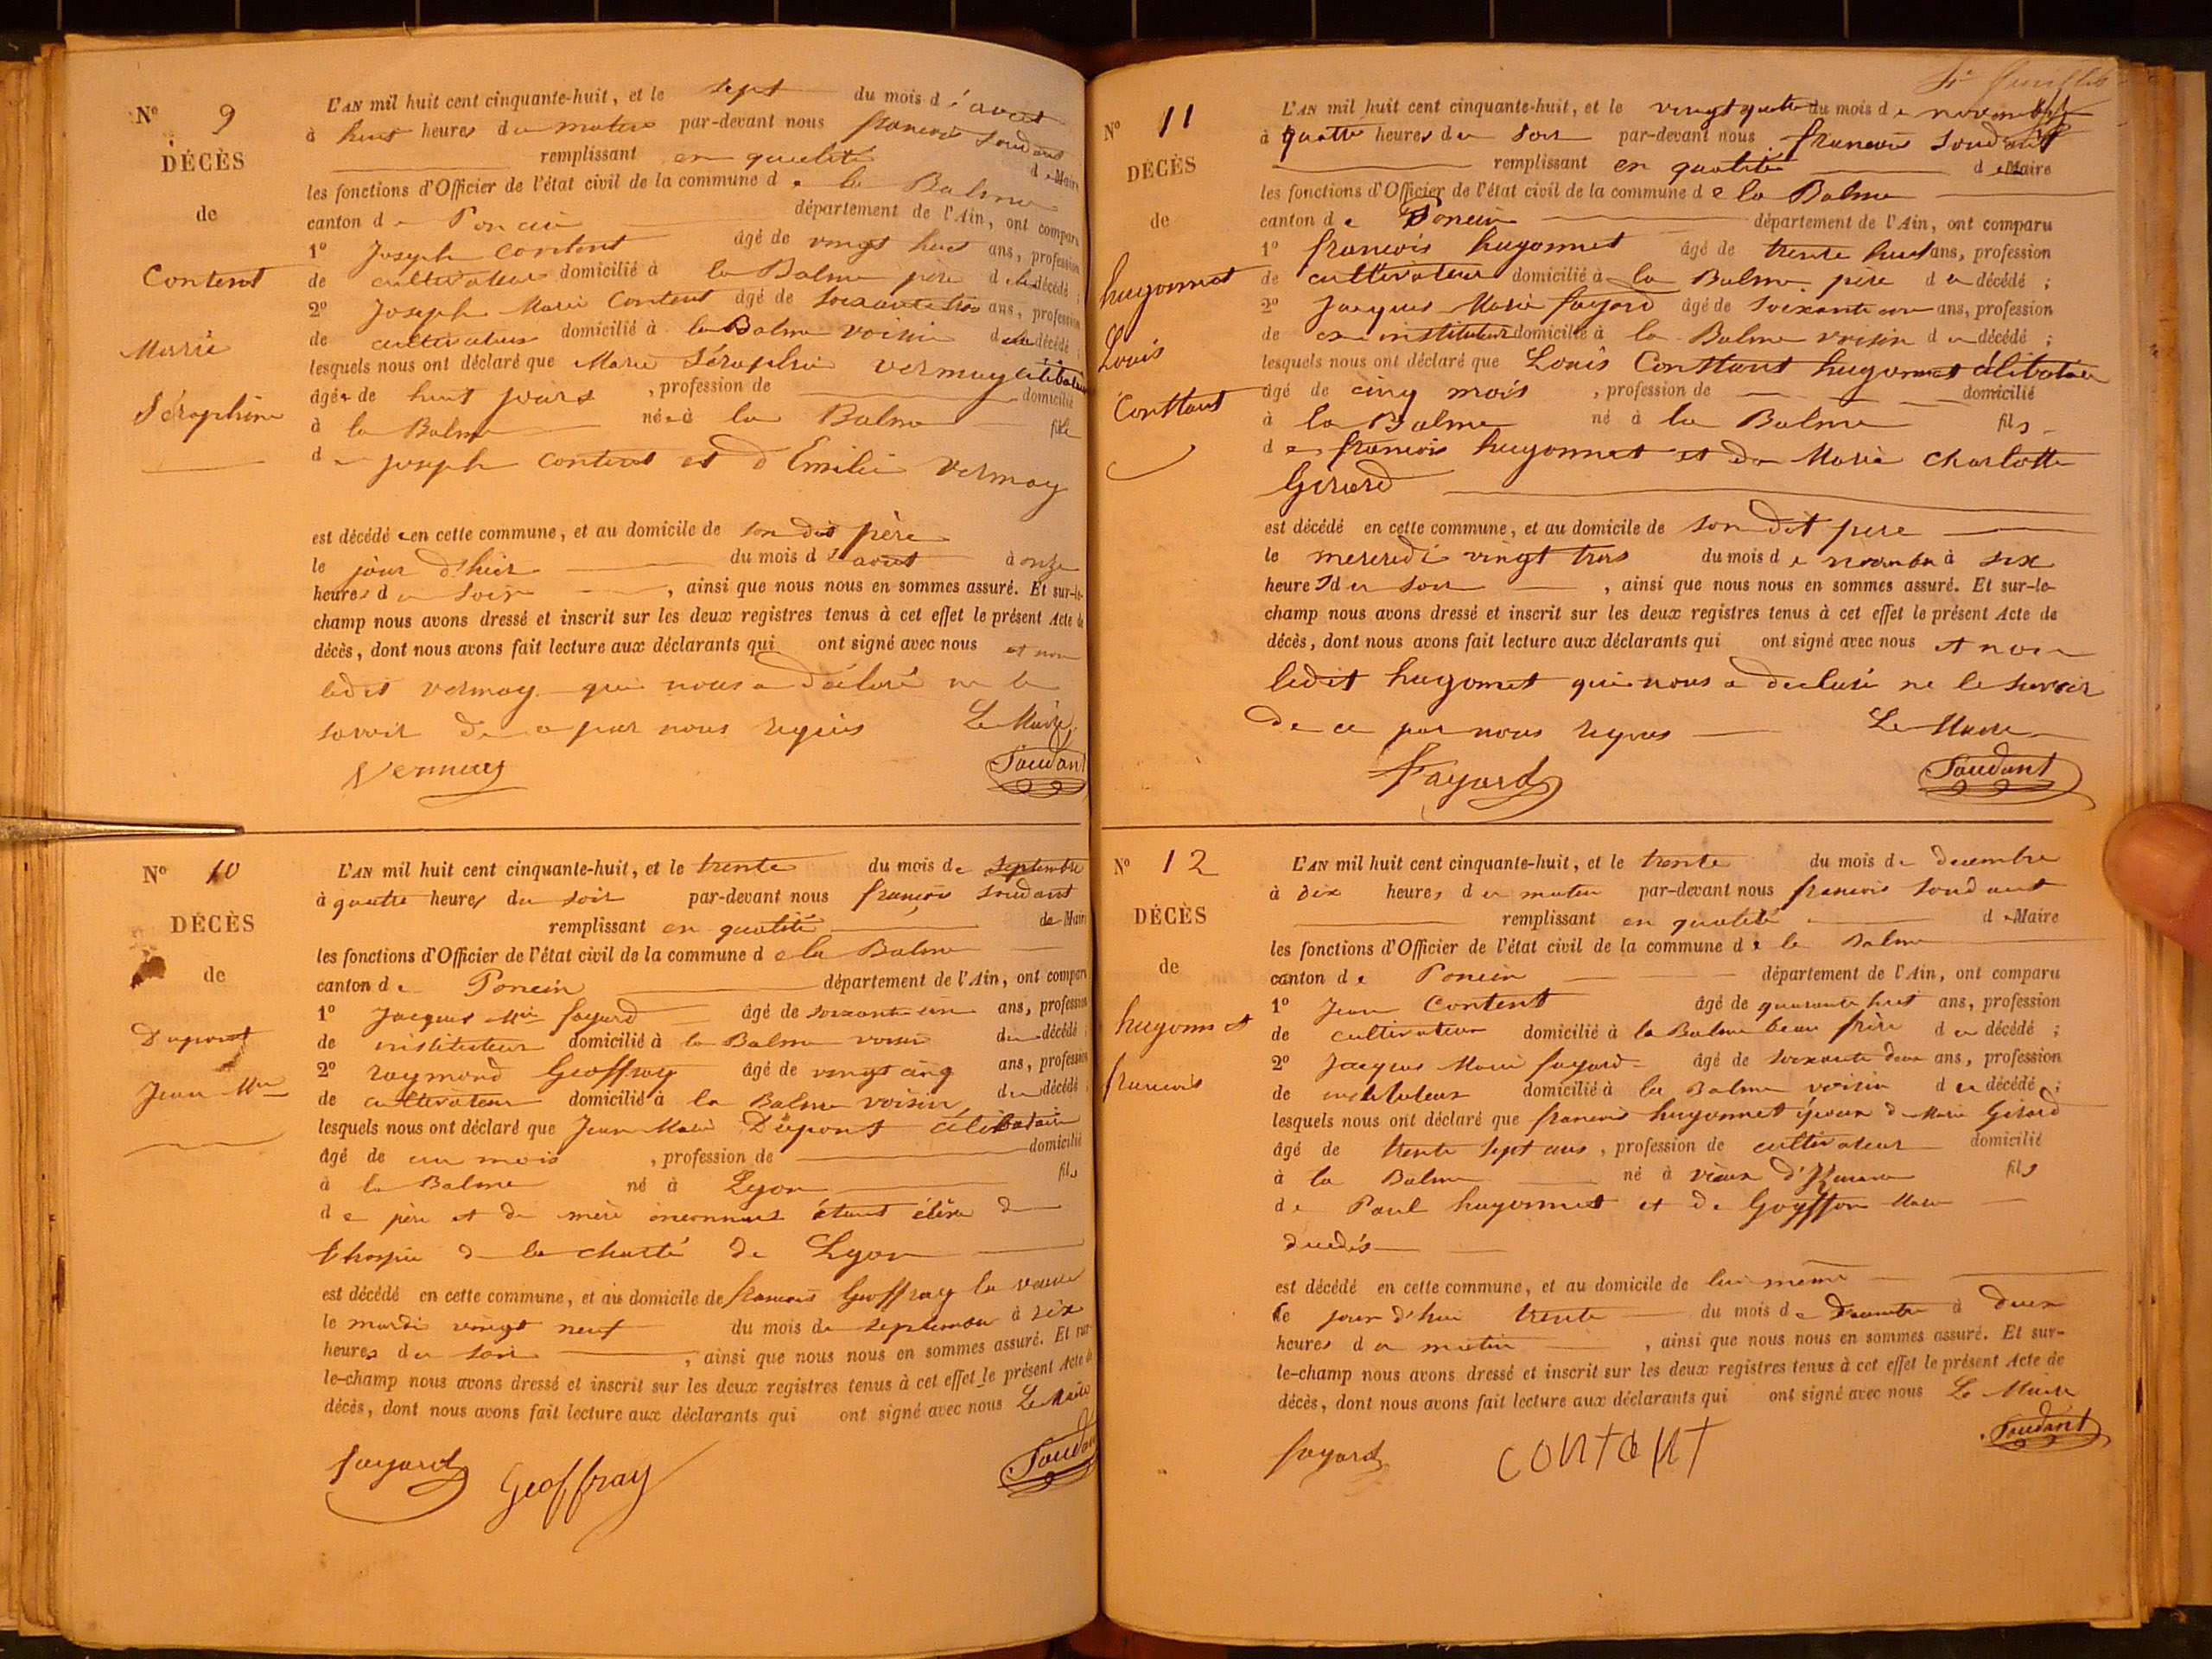 N° 9
DÉCÈS
de
Content
Marie
Séraphine
L'AN mil huit cent cinquante-huit, et le sept du mois d'aout
à huit heures du matin par-devant nous françois Soudant
remplissant en qualité de Maire
les fonctions d'Officier de l'état civil de la commune de la Balme
canton de Poncin département de l'Ain, ont comparu
1° Joseph Content âgé de vingt huit ans, profession
de cultivateur domicilié à la Balme père de la décédé ;
2° Joseph Marie Content âgé de soixante trois ans, profession
de cultivateur domicilié à la Balme voisin de la décédé ;
lesquels nous ont déclaré que Marie Séraphie vermay célibataire
âgée de huit jours , profession de domicilié
à la Balme née à la Balme fille
de joseph content et d'Emilie Vermay
est décédée en cette commune, et au domicile de son dit père
le jour d'hier du mois d'aout à onze
heures du soir , ainsi que nous nous en sommes assuré. Et sur-le-
champ nous avons dressé et inscrit sur les deux registres tenus à cet effet le présent Acte de
décès, dont nous avons fait lecture aux déclarants qui ont signé avec nous et non
ledit vermay qui nous a déclaré ne le
savoir de ce par nous requis Le Maire
Vermay Soudant
N° 10
DÉCÈS
de
Dupont
Jean Mie
L'AN mil huit cent cinquante-huit, et le trente du mois de septembre
à quatre heures du soir par-devant nous françois soudant
remplissant en qualité de Maire
les fonctions d'Officier de l'état civil de la commune de la Balme
canton de Poncin département de l'Ain, ont comparu
1° Jacques Mie fayard âgé de soixante un ans, profession
de instituteur domicilié à la Balme voisin du décédé ;
2° raymond Geoffray âgé de vingt cinq ans, profession
de cultivateur domicilié à la Balme voisin du décédé ;
lesquels nous ont déclaré que Jean Marie Dupont célibataire
âgé de un mois , profession de domicilié
à la Balme né à Lyon fils
de père et de mère inconnus étant élève de
l'hospice de la charité de Lyon
est décédé en cette commune, et au domicile de francois Geoffray la veuve
le mardi vingt neuf du mois de septembre à six
heures du soir , ainsi que nous nous en sommes assuré. Et sur-
le-champ nous avons dressé et inscrit sur les deux registres tenus à cet effet le présent Acte de
décès, dont nous avons fait lecture aux déclarants qui ont signé avec nous Le Maire
fayard Geoffray Soudant
N° 11
DÉCÈS
de
hugonnet
Louis
Constant
L'AN mil huit cent cinquante-huit, et le vingt quatre du mois de novembre
à quatre heures du soir par-devant nous francois Soudant
remplissant en qualité de Maire
les fonctions d'Officier de l'état civil de la commune de la Balme
canton de Poncin département de l'Ain, ont comparu
1° francois hugonnet âgé de trente huit ans, profession
de cultivateur domicilié à la Balme père du décédé ;
2° Jacques Marie fayard âgé de soixante un ans, profession
de ex instituteur domicilié à la Balme voisin du décédé ;
lesquels nous ont déclaré que Louis Constant hugonnet célibataire
âgé de cinq mois , profession de domicilié
à la Balme né à la Balme fils
de francois hugonnet et de Marie Charlotte
Girard
est décédé en cette commune, et au domicile de son dit père
le mercredi vingt trois du mois de novembre à six
heures du soir , ainsi que nous nous en sommes assuré. Et sur-le-
champ nous avons dressé et inscrit sur les deux registres tenus à cet effet le présent Acte de
décès, dont nous avons fait lecture aux déclarants qui ont signé avec nous et non
ledit hugonnet qui nous a declaré ne le savoir
de ce par nous requis Le Maire
Fayard Soudant
N° 12
DÉCÈS
de
hugonnet
francois
L'AN mil huit cent cinquante-huit, et le trente du mois de decembre
à dix heures du matin par-devant nous francois Soudant
remplissant en qualité de Maire
les fonctions d'Officier de l'état civil de la commune de la Balme
canton de Poncin département de l'Ain, ont comparu
1° Jean Content âgé de quarante huit ans, profession
de cultivateur domicilié à la Balme beau frère du décédé ;
2° Jacques Marie fayard âgé de soixante deux ans, profession
de instituteur domicilié à la Balme voisin du décédé ;
lesquels nous ont déclaré que francois hugonnet époux de Marie Girard
âgé de trente sept ans , profession de cultivateur domicilié
à la Balme né à vieux d'Izenave fils
de Paul hugonnet et de Goyffon Marie
decedés
est décédé en cette commune, et au domicile de lui même
le jour d'hui trente du mois de decembre à deux
heures du matin , ainsi que nous nous en sommes assuré. Et sur-
le-champ nous avons dressé et inscrit sur les deux registres tenus à cet effet le présent Acte de
décès, dont nous avons fait lecture aux déclarants qui ont signé avec nous Le Maire
fayard contant Soudant